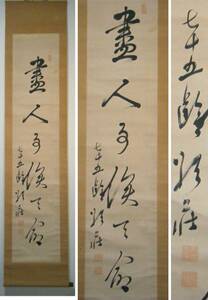 盡人事俟天命
七十五齡
盡人事俟天命
七十五齡
七十五齡